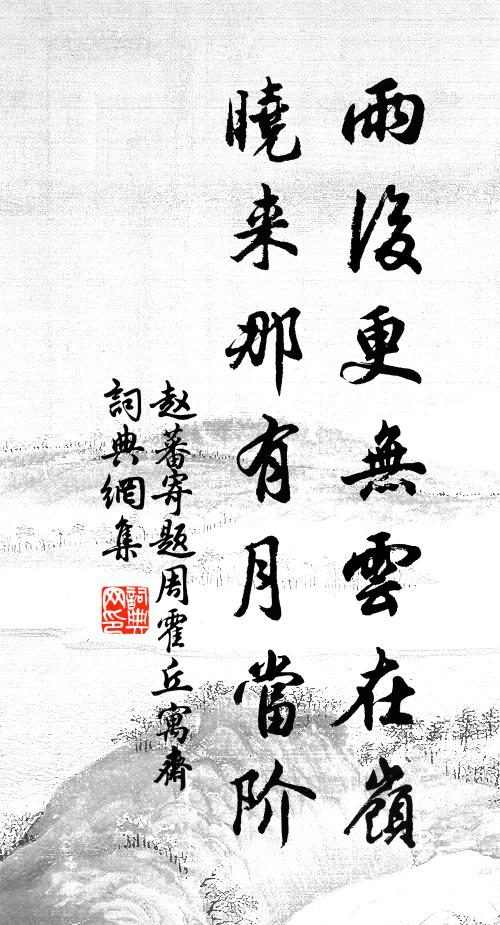 雨後更無雲在嶺
曉来那有月當阶
赵蕃寄题周霍丘寓斋
詞典網集
詞典网印